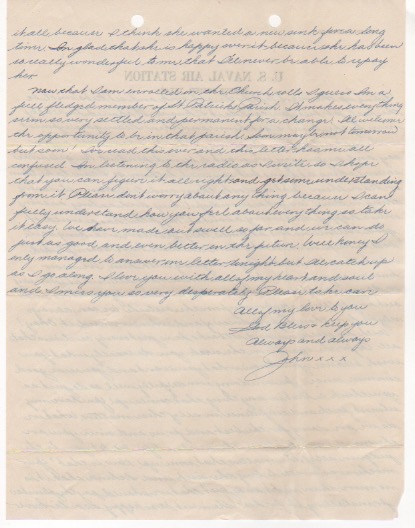 it all because I think she wanted a new sink for so long
time. Im glad that she is happy over it because she has been
so really wonderful to me that I'll never be able to repay
her
U. S. NAVAL AIR STATION
Now that I am enrolled in the Church rolls I guess Im a
full fledged member of St Patricks Parish. It makes everything
seem so very settled and permanent for a change. I'll welcome
the opportunity to be in that parish soon maybe not tomorrow
but soon! Ive read this over and this letter has me all
confused. Im listening to the radio as I write so I hope
that you can figure it all right and get some understanding
from it. Please don't worry about any thing because I can
freely understand how you feel about everything so take
it easy. We been made out swell so far and we can do
just as good and even better in the future. Well honey I
only managed to answer one letter tonight but I'll catch up
as I go along. I love you with all of my heart and soul
and I miss you so very desperately. Please take care
All of my love to you
God Bless & keep you
Always and always
John x x x